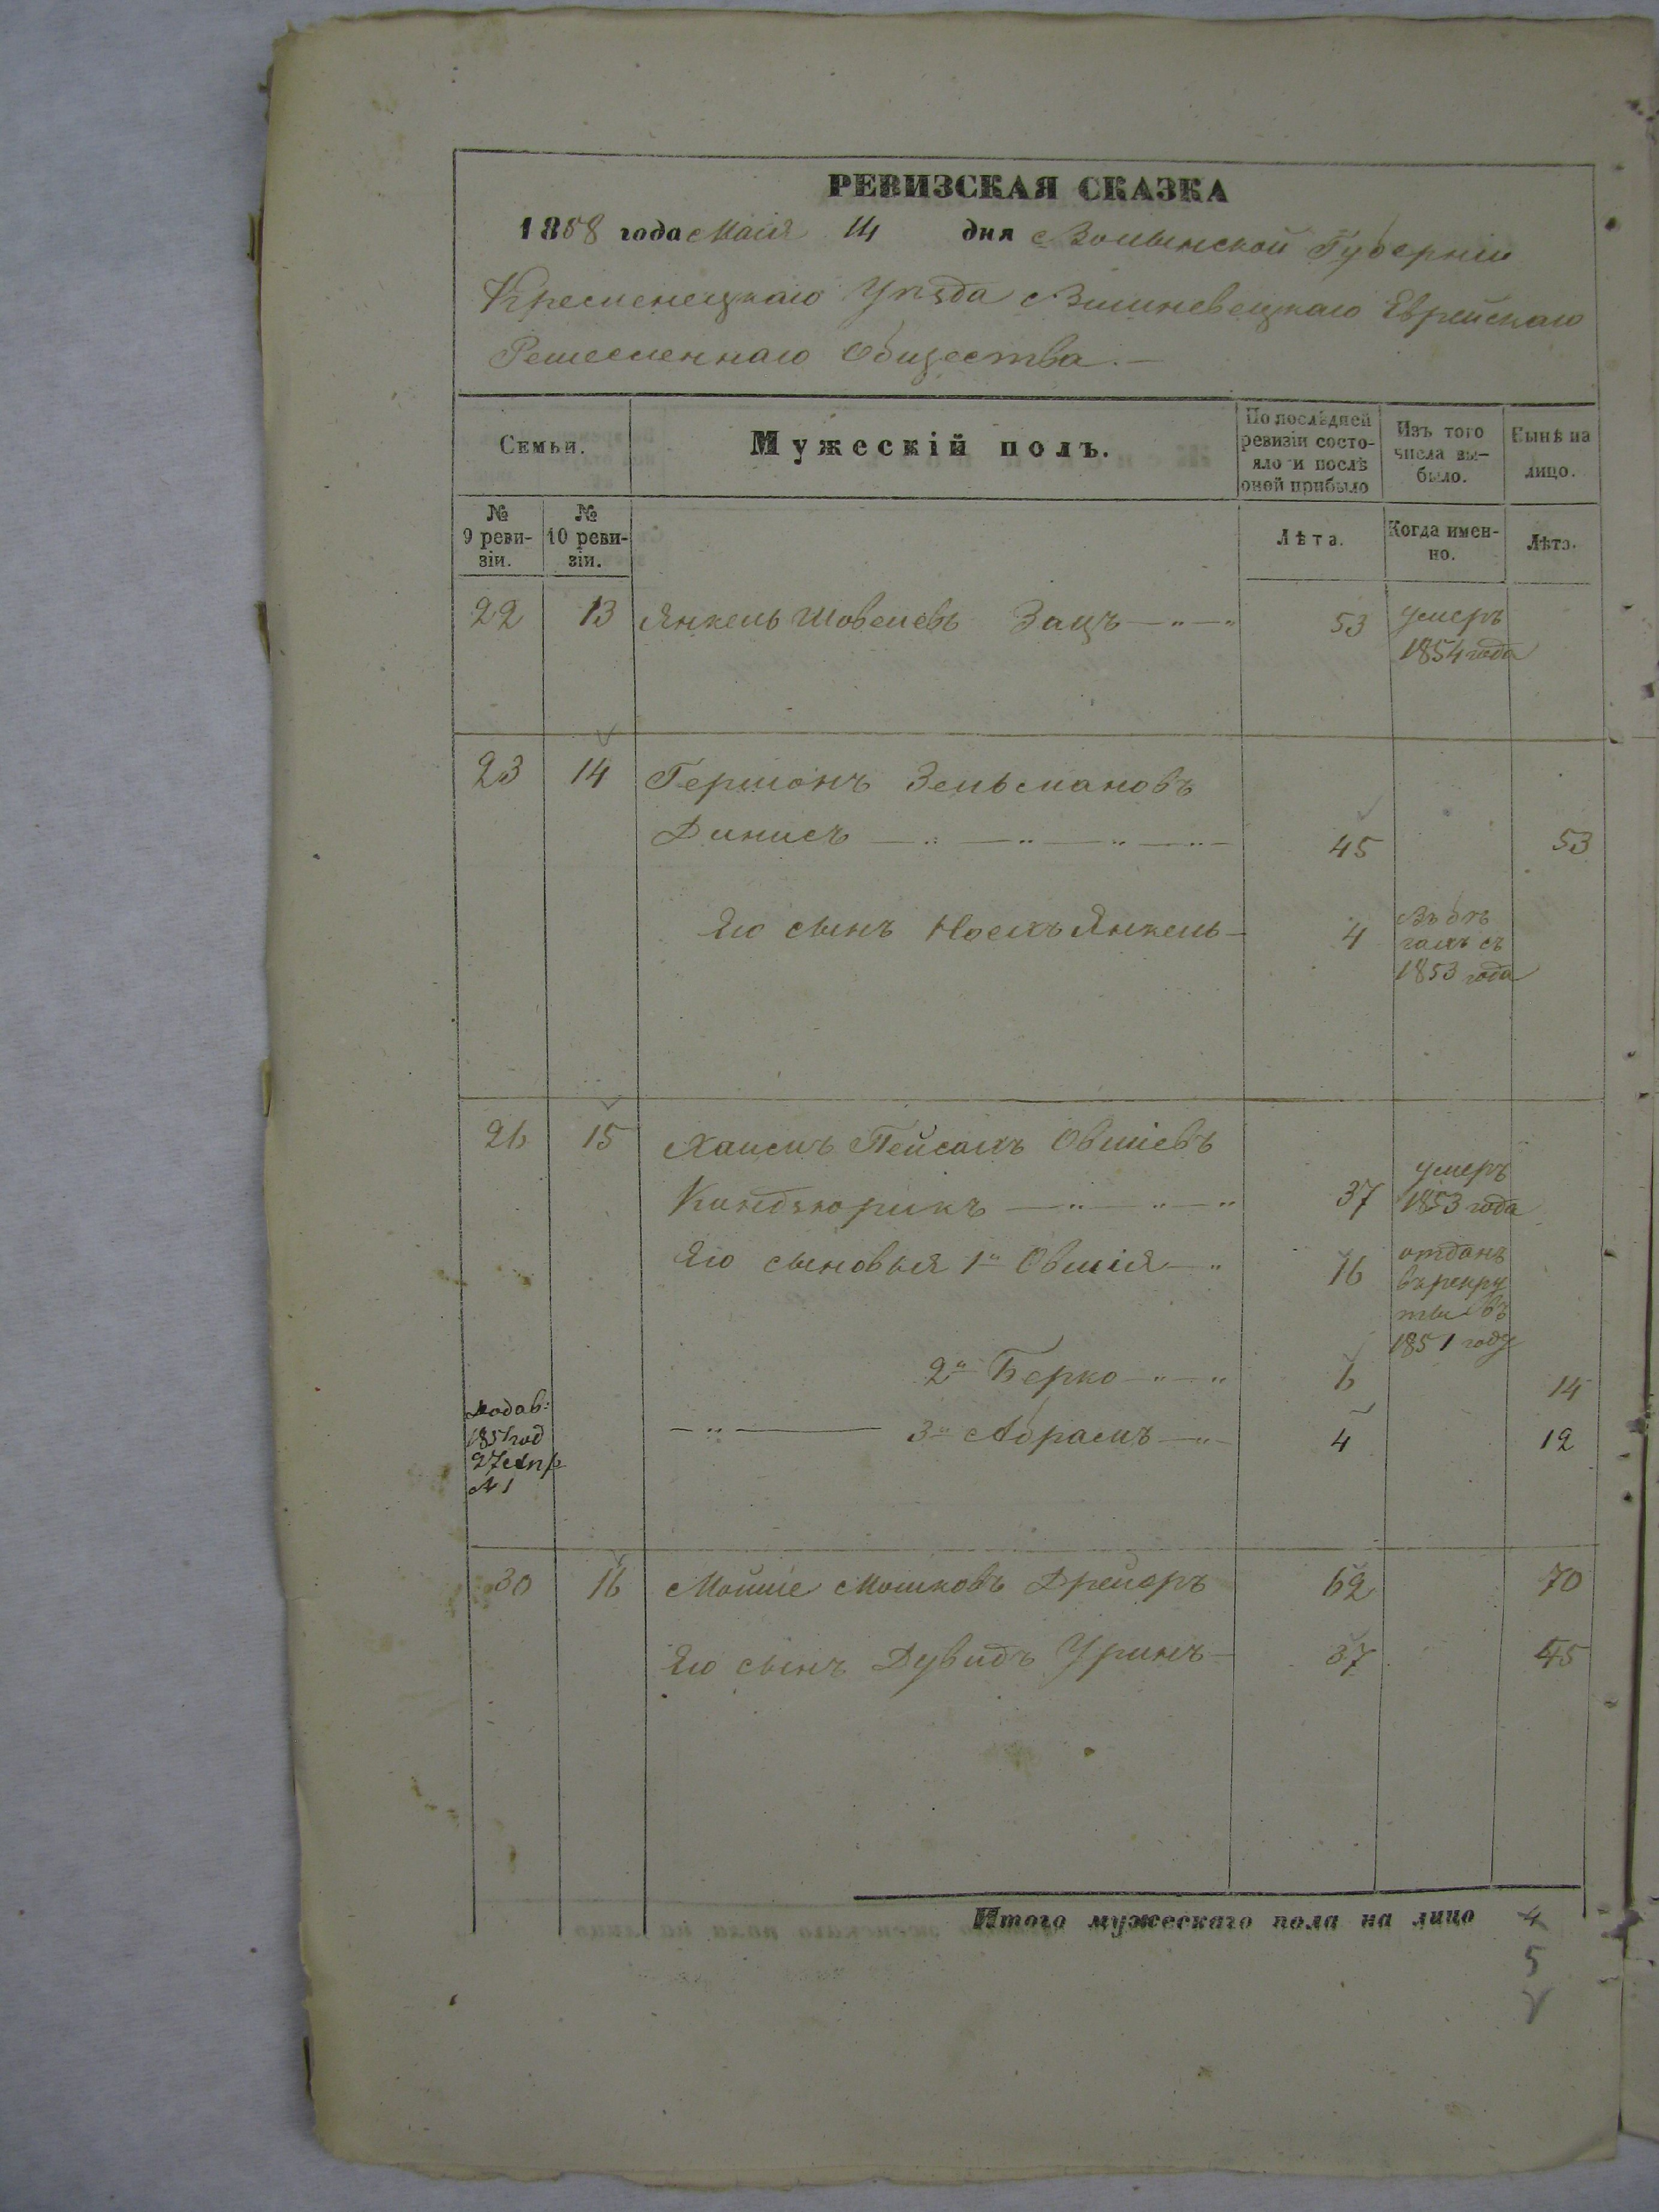 РЕВИЗСКАЯ СКАЗКА
1858 года Маія 14 дня Волынской Губерніи
Кременецкаго Уѣзда Вишневецкаго Еврейскаго
Ремесленнаго Общества.—
Семьи.
Мужескій полъ.
По послѣдней ревизіи состо-
яло и послѣ
оной прибыло
Изъ того
числа вы-
было.
Нынѣ на
лицо.
№
9 реви-
зіи.
№
10 реви-
зіи.
Лѣта.
Когда имен-
но.
Лѣта.
22 13 Янкель Шовелевъ Зацъ 53 умеръ
1854 года
23 14 Гершонъ Зельмановъ
Динисъ 45 53
Его сынъ Носехъ Янкель 4 Въ бѣ-
гахъ съ
1853 года
26 15 Хаимъ Пейсахъ Овшіевъ
Киндзюрикъ 37 умеръ
1853 года
Его сыновья 1й Овшія 16 отданъ
въ рекру
ты въ
1851 году
2й Берко 6 14
3й Абрамъ 4 12
Подав:
1851 год
27 Апр
№ 1
30 16 Мошіе Мошковъ Дрейеръ 62 70
Его сынъ Дувидъ Уринъ 37 45
Итого мужескаго пола на лицо 4
5